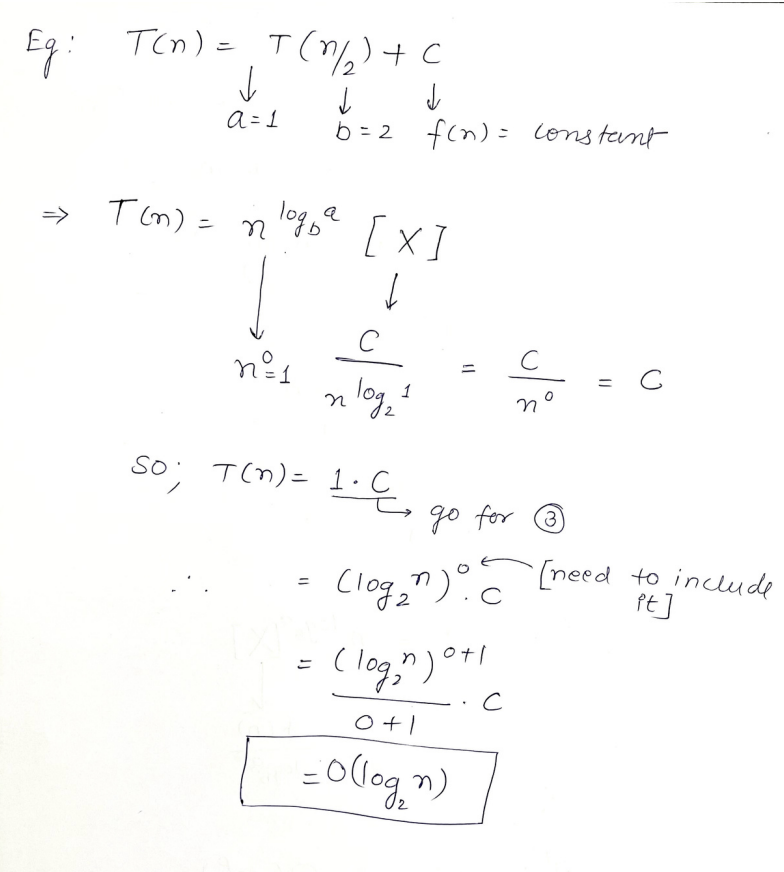 Eg: T(n) = T(n/2) + C
↓ ↓ ↓
a=1 b=2 f(n) = constant
⇒ T(n) = n^{log_b a} [X]
↓ ↓
n^0=1 C / n^{log_2 1} = C / n^0 = C
SO; T(n) = 1·C
↳ go for ③
∴ = (log_2 n)^0 · C ← [need to include it]
= (log_2 n)^{0+1} / 0+1 · C
= O(log_2 n)